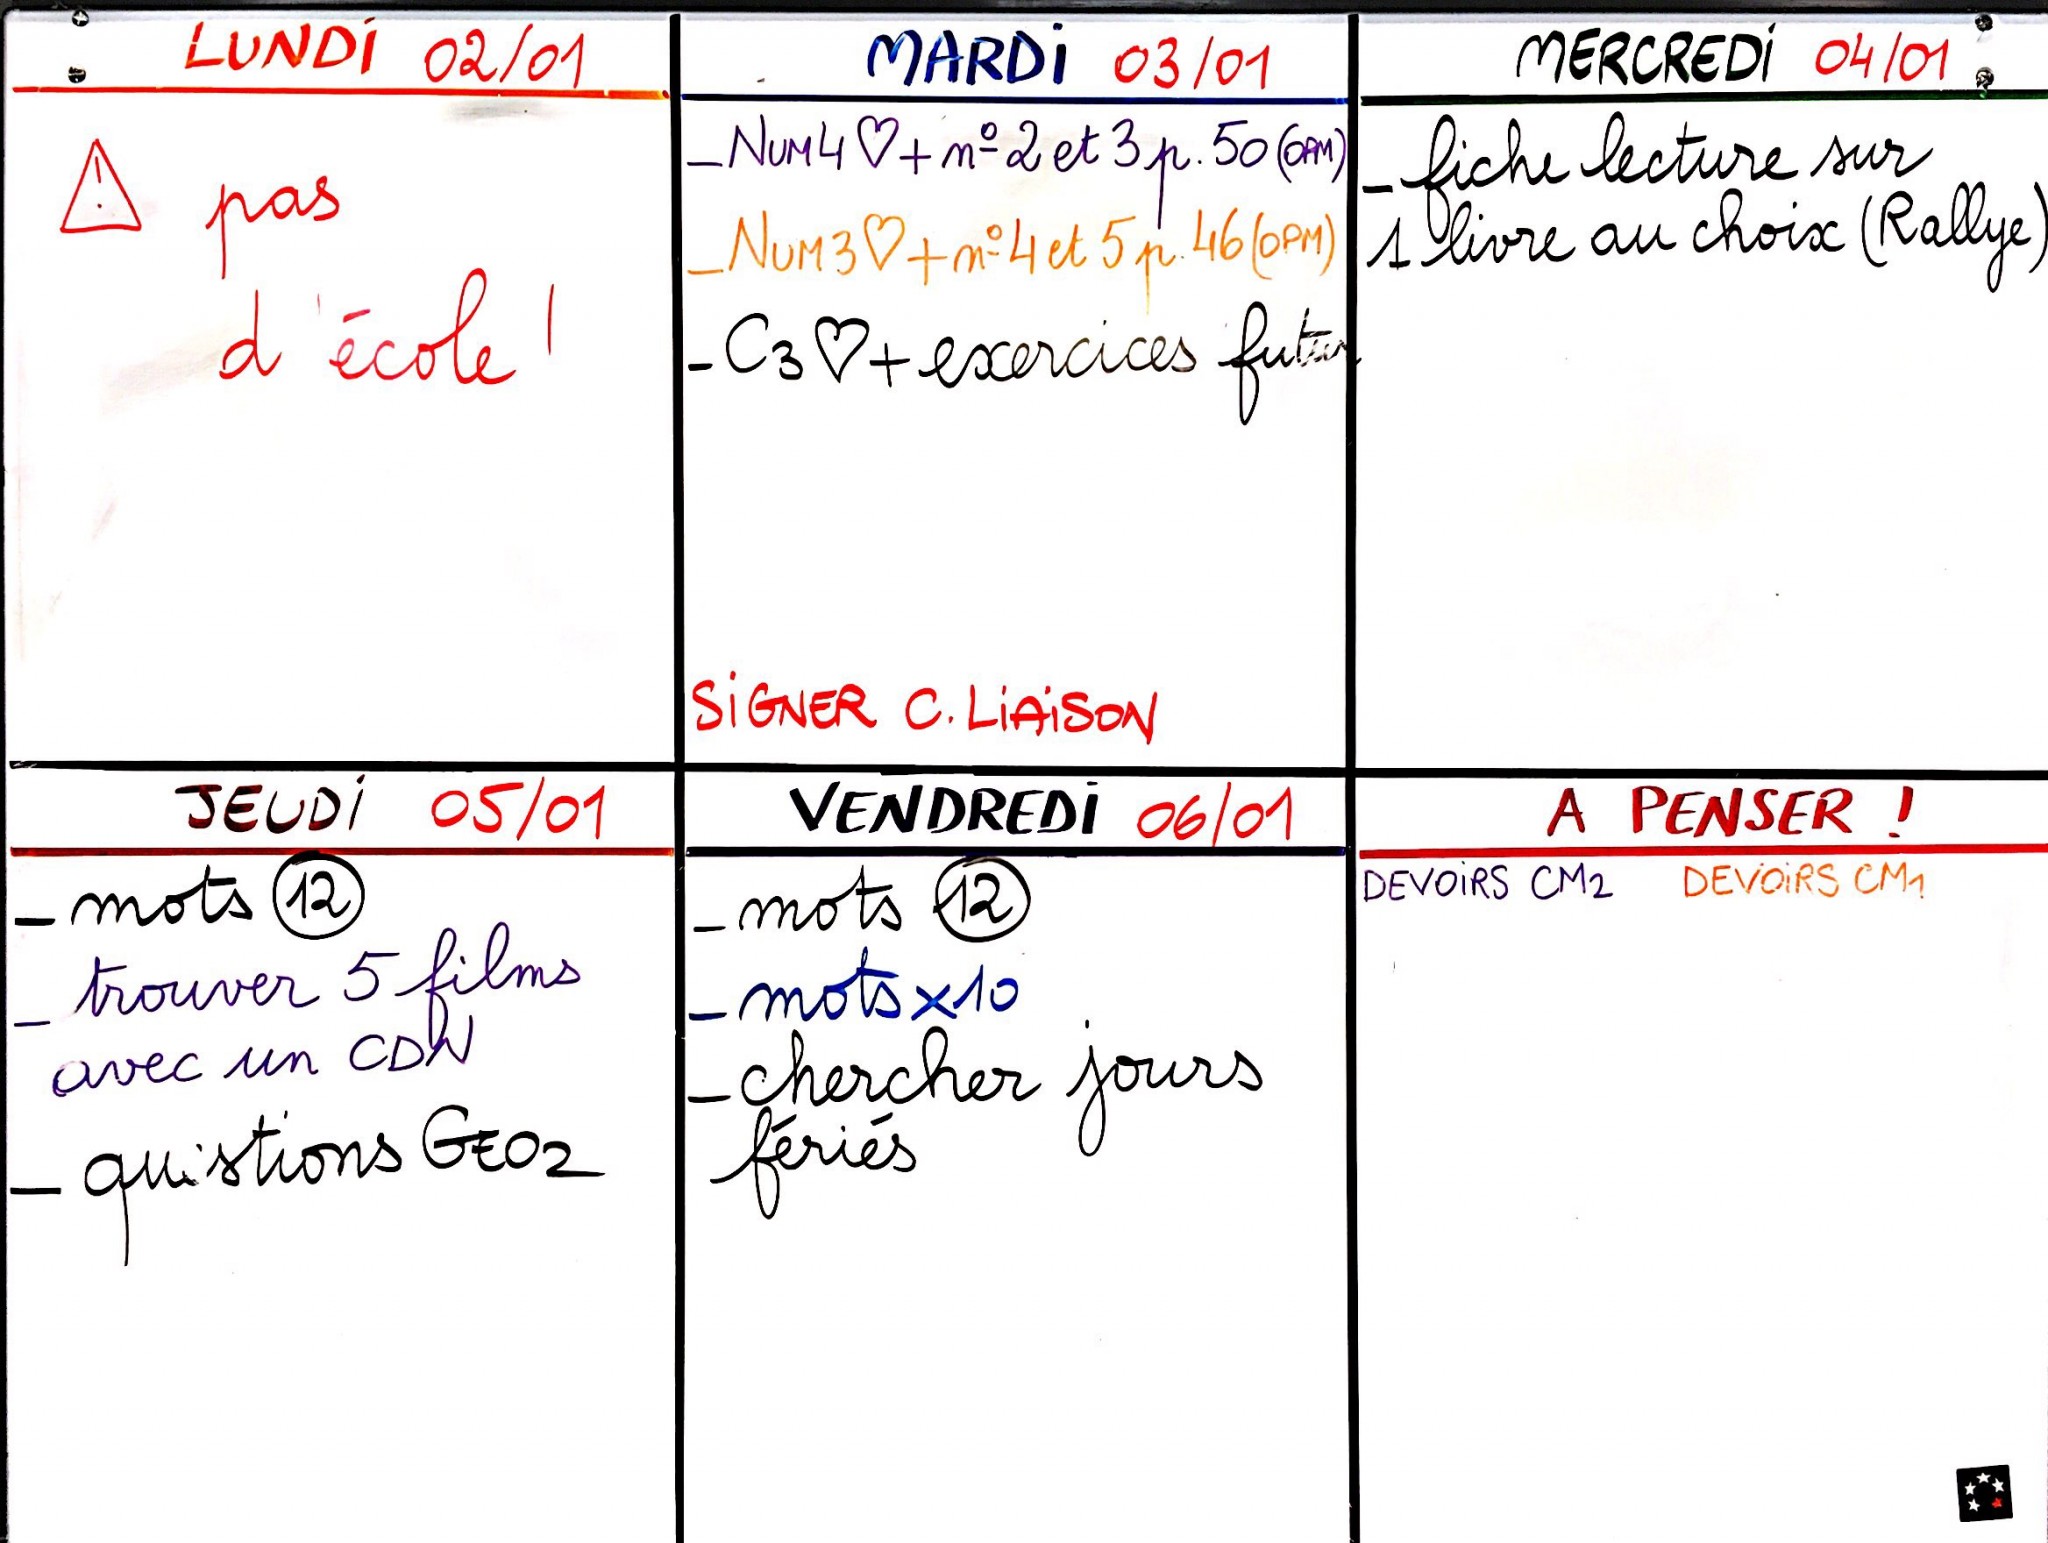 LUNDI 02/01
pas
d'école !
MARDI 03/01
- NUM4♡ + n° 2 et 3 p. 50 (OPM)
- NUM3♡ + n° 4 et 5 p. 46 (OPM)
- C3♡ + exercices futur
SIGNER C. LIAISON
MERCREDI 04/01
- fiche lecture sur
1 livre au choix (Rallye)
JEUDI 05/01
- mots 12
- trouver 5 films
avec un CDN
- questions GEO2
VENDREDI 06/01
- mots 12
- mots x10
- chercher jours
fériés
A PENSER !
DEVOIRS CM2 DEVOIRS CM1